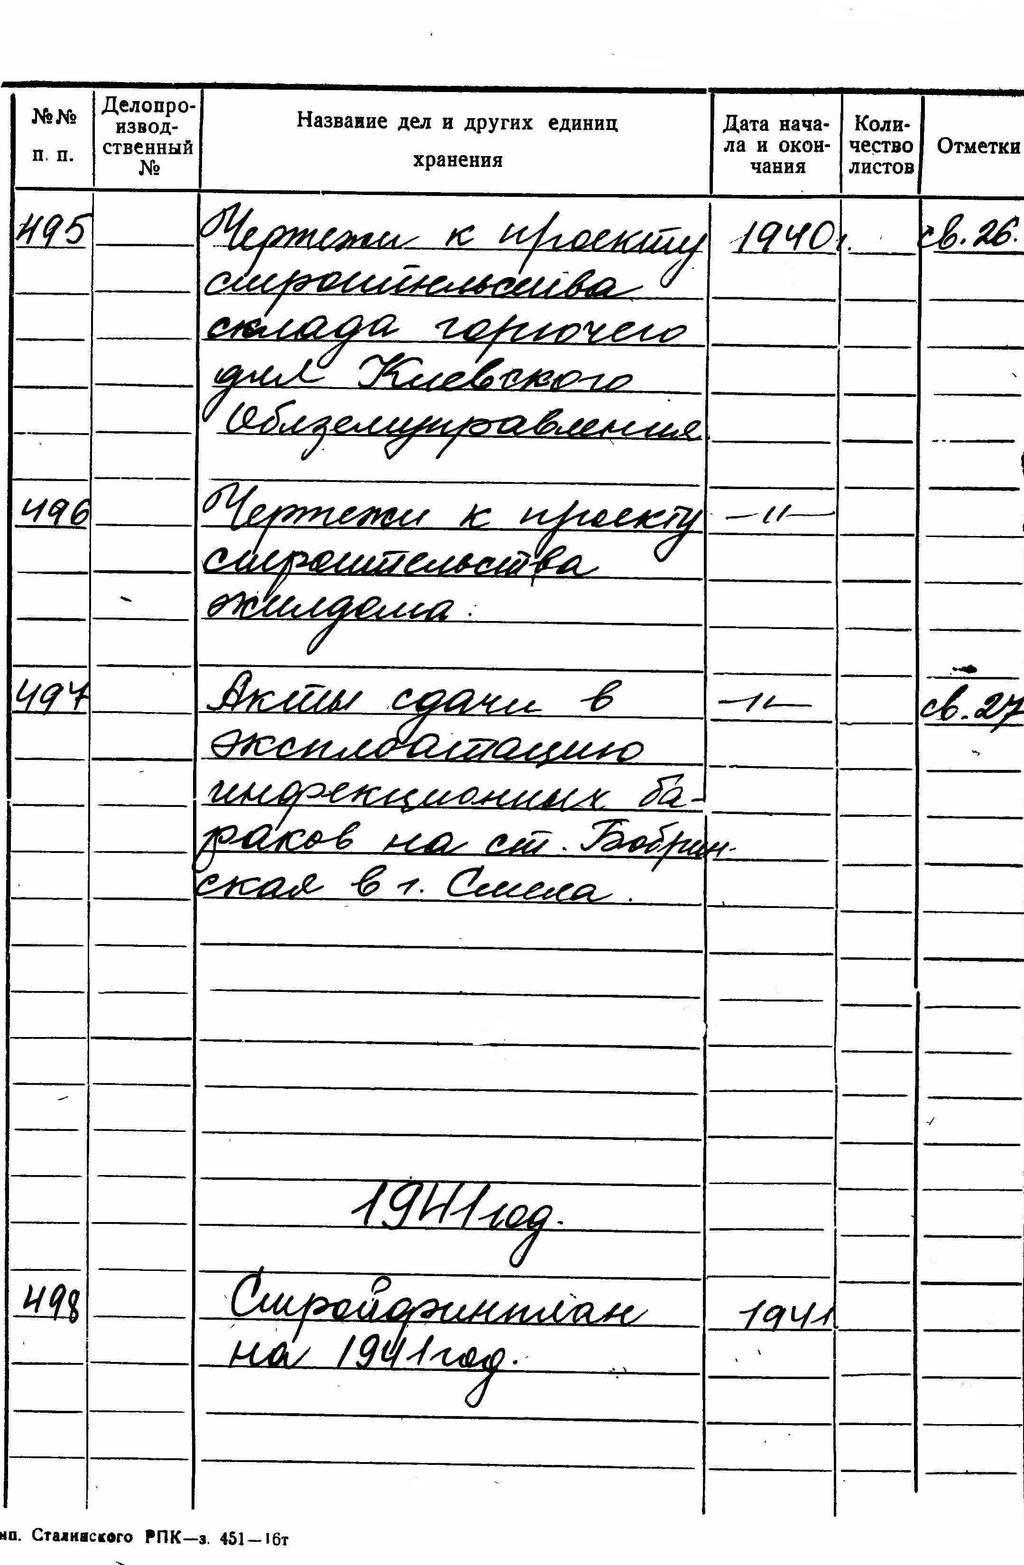 №№ п. п.
Делопро-
извод-
ственный
№
Название дел и других единиц
хранения
Дата нача-
ла и окон-
чания
Коли-
чество
листов
Отметки
495 Чертежи к проекту 1940г. св. 26.
строительства
склада горючего
для Киевского
Облземуправления
496 Чертежи к проекту —〃—
строительства
жилдома.
497 Акты сдачи в —〃— св. 27
эксплоатацию
инфекционных ба-
раков на ст. Бобрин-
ская в г. Смела.
1941 год.
498 Стройфинплан 1941
на 1941 год.
ип. Сталинского РПК—з. 451—16т